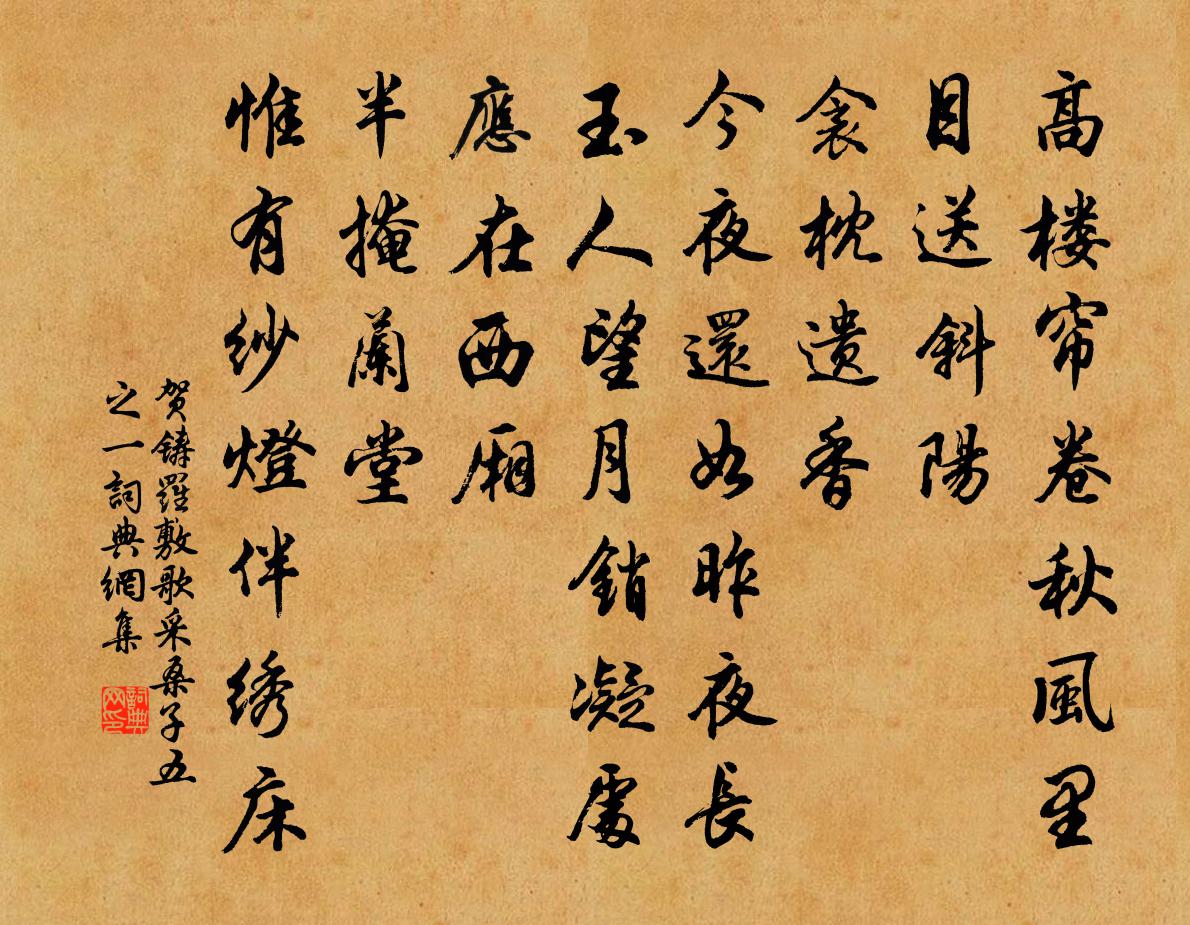 高楼帘卷秋风里
目送斜陽
衾枕遗香
今夜還如昨夜長
玉人望月銷凝處
應在西厢
半掩蘭堂
惟有纱燈伴绣床
贺铸羅敷歌采桑子五
之一詞典網集
詞典网印